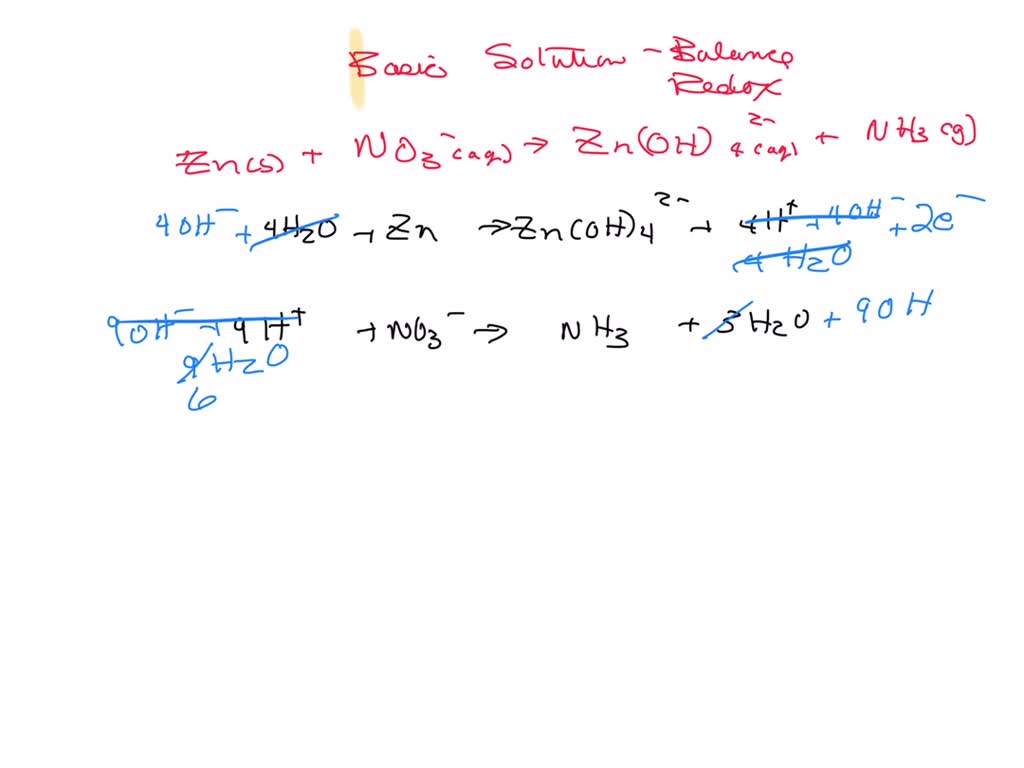 Basic Solution - Balance
Redox
Zn(s) + NO3⁻(aq) → Zn(OH)4²⁻(aq) + NH3(g)
4OH⁻ + 4H2O + Zn → Zn(OH)4²⁻ + 4H⁺ + 4OH⁻ + 2e⁻
4H2O
9OH⁻ + 9H⁺ + NO3⁻ → NH3 + 3H2O + 9OH
9H2O
6